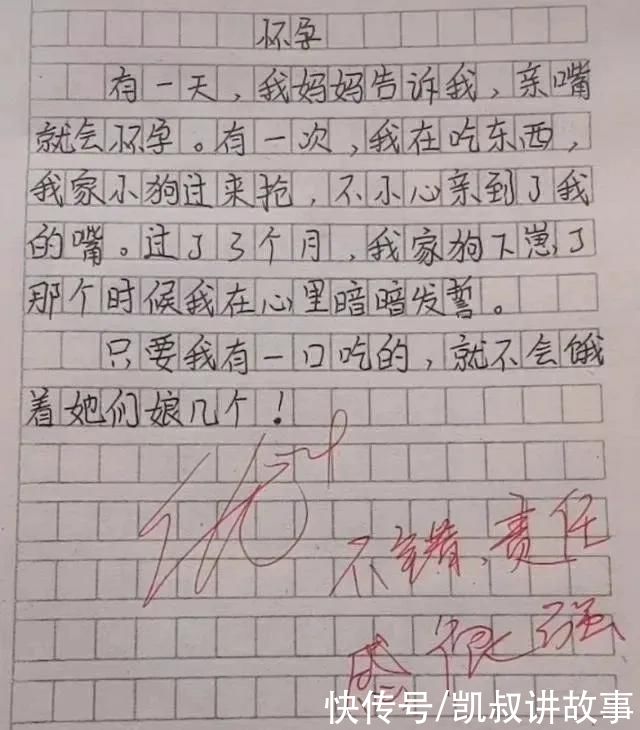 怀孕
有一天，我妈妈告诉我，亲嘴
就会怀孕。有一次，我在吃东西，
我家小狗过来抢，不小心亲到了我
的嘴。过了3个月，我家狗下崽了
那个时候我在心里暗暗发誓。
只要我有一口吃的，就不会饿
着她们娘几个！
不错，责任
感很强
快传号/凯叔讲故事